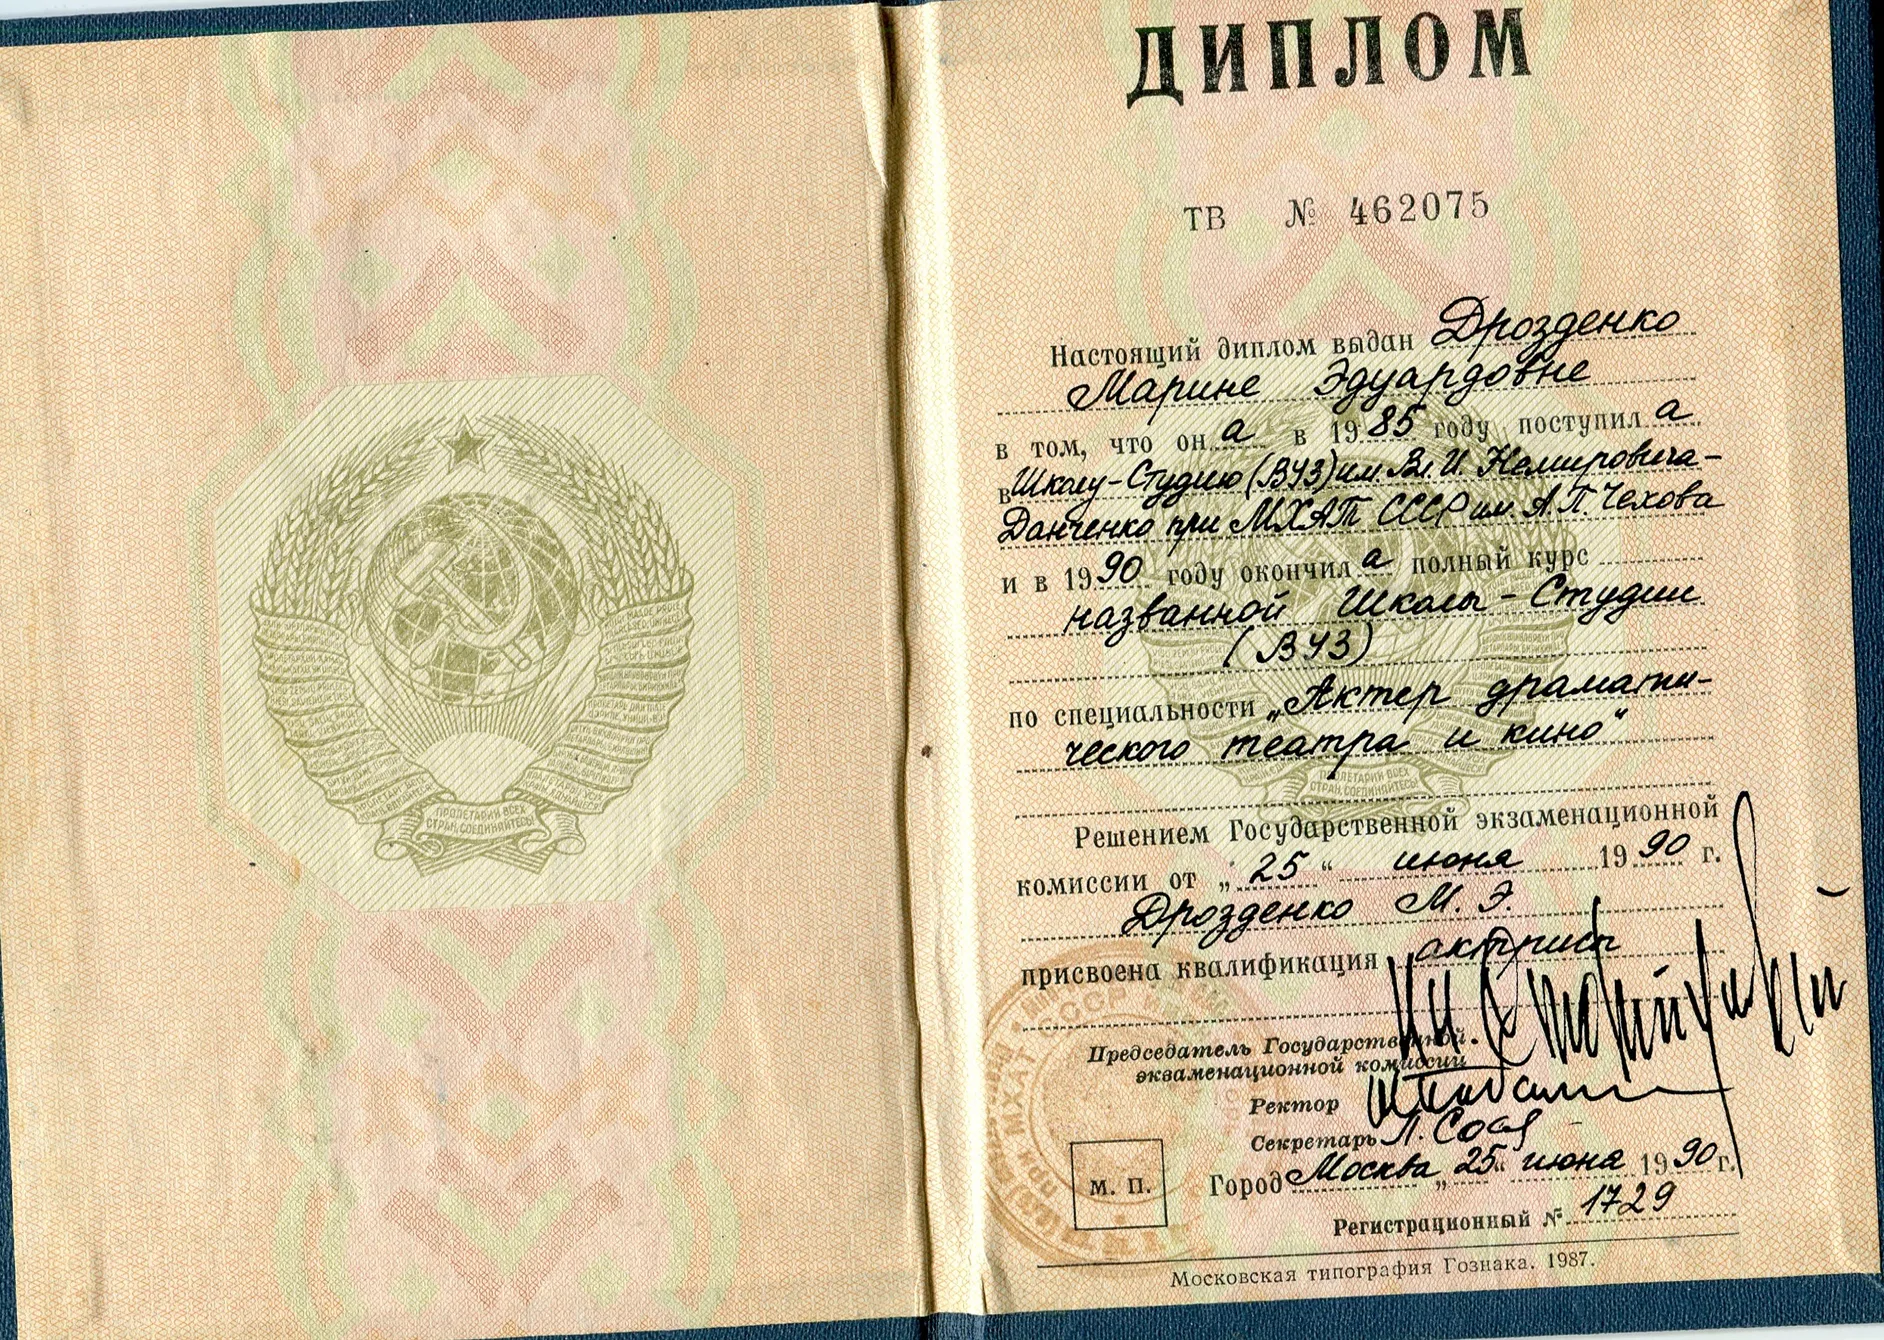 ПРОЛЕТАРИИ ВСЕХ
СТРАН, СОЕДИНЯЙТЕСЬ!
ДИПЛОМ
ТВ № 462075
Настоящий диплом выдан Дрозденко
Марине Эдуардовне
в том, что он а в 19 85 году поступил а
в Школу-Студию (ВУЗ) им. Вл. И. Немировича-
Данченко при МХАТ СССР им. А.П. Чехова
и в 19 90 году окончил а полный курс
названной Школы-Студии
(ВУЗ)
по специальности „Актер драмати-
ческого театра и кино“
ПРОЛЕТАРИИ ВСЕХ
СТРАН, СОЕДИНЯЙТЕСЬ!
Решением Государственной экзаменационной
комиссии от „ 25 “ июня 19 90 г.
Дрозденко М. Э.
присвоена квалификация актрисы
Председатель Государственной
экзаменационной комиссии
Ректор
Секретарь
М. П.
Город Москва „ 25 “ июня 19 90 г.
Регистрационный № 1729
Московская типография Гознака. 1987.